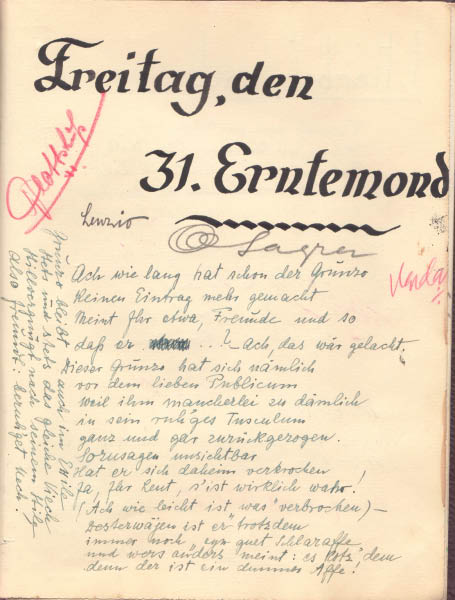 Freitag, den
31. Erntemond
Lenzio
Sagzer
Ach wie lang hat schon der Grunzo
kleinen Eintrag mehr gemacht
Meint Ihr etwa, Freunde und so
daß er ... Ach, das wär gelacht.
Dieser Grunzo hat sich nämlich
vor dem lieben Publicum
weil ihm mancherlei zu dämlich
in sein ruh'ges Tusculum
ganz und gar zurückgezogen.
Sozusagen unsichtbar
Hat er sich daheim verbrochen
Ja, Ihr Leut, s'ist wirklich wahr!
(Ach wie leicht ist "was" verbrochen) –
Desterwäjen ist er trotzdem
immer noch, eyn guet Schlaraffe
und wers anders meint: es "Rotz" dem
denn der ist ein dummes Affe!
Grunzo bleibt auch im Exile
stets und stets das gleiche Viech
Also Freunde: beruhiget Aech!